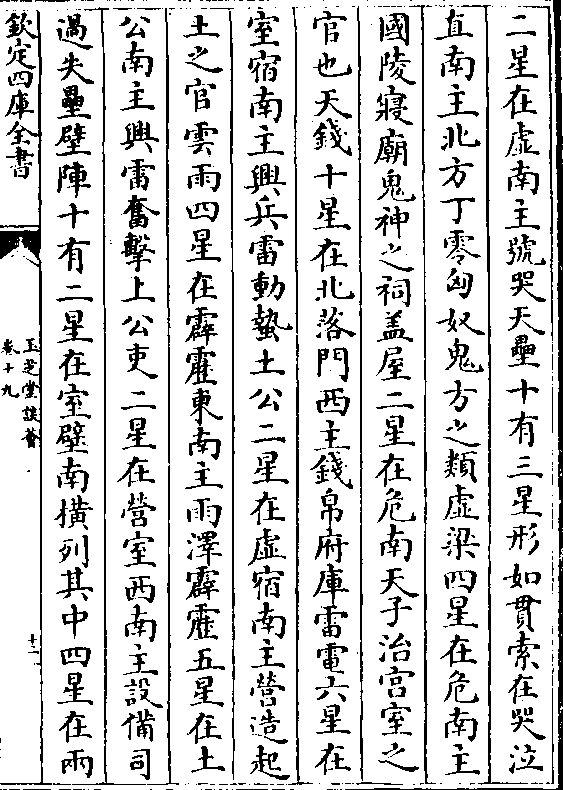 二星在虛南主號哭天壘十有三星形如貫索在哭泣
直南主北方丁零匈奴鬼方之類虛梁四星在危南主
國陵寢廟鬼神之祠盖屋二星在危南天子治宫室之
官也天錢十星在北落門西主錢帛府庫雷電六星在
室宿南主興兵雷動蟄土公二星在虛宿南主營造起
土之官雲雨四星在霹靂東南主雨澤霹靂五星在土
公南主興雷奮擊上公吏二星在營室西南主設備司
過失壘壁陣十有二星在室壁南横列其中四星在兩
欽定四庫全書
玉芝堂談薈
卷十九